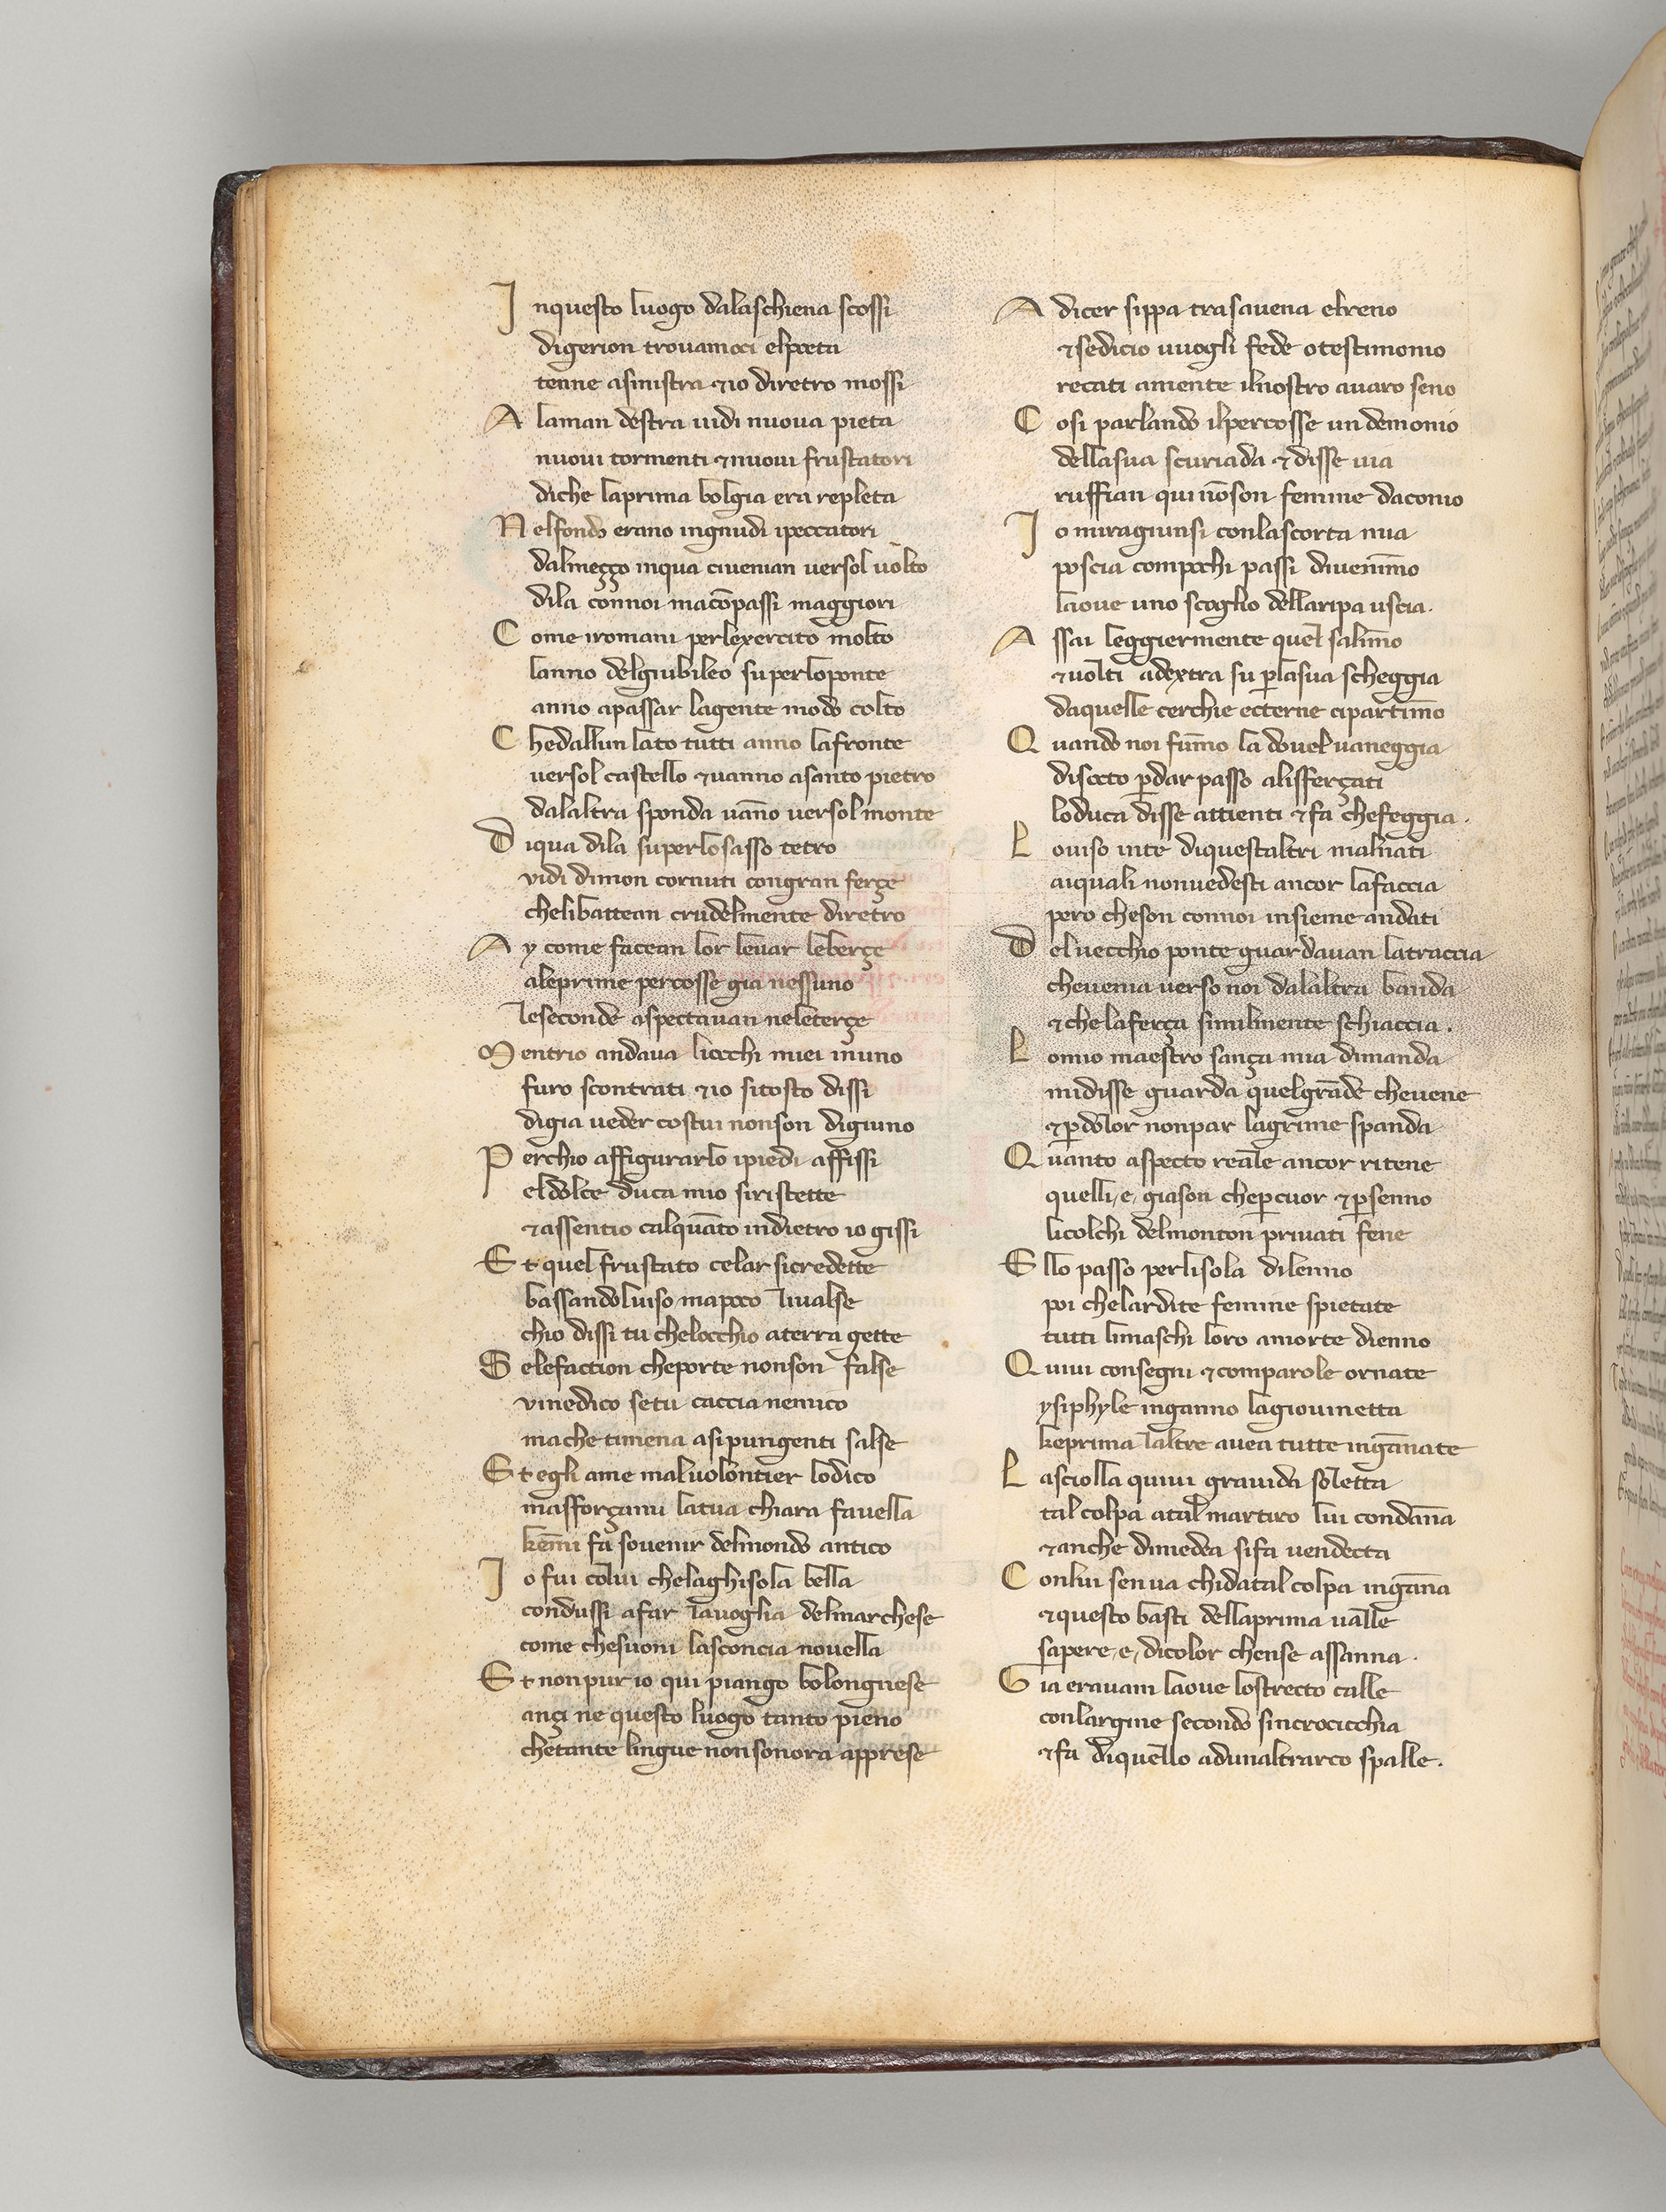 Inquesto luogo dalaschiena scossi
digerion trovamoci elpoeta
tenne asinistra ⁊io diretro mossi
Alaman destra uidi nuoua pieta
nuoui tormenti ⁊nuoui frustatori
diche laprima bolgia era repleta
Nelfondo erano ingnudi ipeccatori
dalmeçço inqua ciuenian uersol uolto
dila connoi macōpassi maggiori
Come iromani perlexercito molto
lanno delgiubileo su perloponte
anno apassar lagente modo colto
Chedallun lato tutti anno lafronte
uersol castello ⁊uanno asanto pietro
dalaltra sponda uāno uersol monte
Diqua dila superlo sasso tetro
vidi dimon cornuti congran ferçe
chelibattean crudelmente diretro
Ay come facean lor leuar leberçe
aleprime percosse gia nessuno
leseconde aspectauan neleterçe
Mentrio andaua liocchi miei inuno
furo scontrati ⁊io sitosto dissi
digia ueder costui nonson digiuno
Perchio affigurarlo ipiedi affissi
eldolce duca mio siristette
⁊assentio calquāto indietro io gissi
Et quel frustato celar sicredette
bassandoluiso mapoco liualse
chio dissi tu chelocchio aterra gette
Selefaction cheporte nonson false
vinedico setu caccianemico
mache timena asipungenti salse
Et egli ame maluolontier lodico
masforçami latua chiara fauella
kemī fa souenir delmondo antico
Io fui colui chelaghisola bella
condussi afar lauoglia delmarchese
come chesuoni lasconcia nouella
Et nonpur io qui piango bolongnese
ançi ne questo luogo tanto pieno
chetante lingue nonsonora apprese
Adicer sippa trasauena elreno
⁊sedicio uuogli fede otestimonio
recati amente ilnostro auaro seno
Cosi parlando ilpercosse un demonio
dellasua scuriada ⁊disse uia
ruffian qui nōson femine daconio
Io miragiunsi conlascorta mia
poscia compochi passi diuenīmo
laoue uno scoglio dellaripa uscia.
Assai leggiermente quel salīmo
⁊uolti adextra su p̄lasua scheggia
daquelle cerchie ecterne cipartīmo
Quando noi fūmo la douel uaneggia
disocto p̄dar passo alisferçati
loduca disse attienti ⁊fa chefeggia.
Louiso inte diquestaltri malnati
aiquali nonuedesti ancor lafaccia
pero cheson connoi insieme andati
Deluecchio ponte guardauan latraccia
cheuenia verso noi dalaltra banda
⁊chelaferça similmente schiaccia.
Lomio maestro sança mia dimanda
midisse guarda quelgrāde cheuene
⁊p̄dolor nonpar lagrime spanda
Quanto aspecto reale ancor ritene
quelli,e,giason chep̄cuor ⁊p̄senno
licolchi delmonton priuati fene
Ello passo perlisola dilenno
poi chelardite femine spietate
tutti limaschi loro amorte dienno
Quiui consegni ⁊comparole ornate
ysiphyle inganno lagiouinetta
keprima laltre auea tutte ingānate
Lasciolla quiui grauida soletta
tal colpa atal martiro lui condāna
⁊anche dimedea sifa uendecta
Conlui senua chidatal colpa ingāna
⁊questo basti dellaprima ualle
sapere,e,dicolor chense assanna.
Gia erauam laoue lostrecto calle
conlargine secondo sincrocicchia
⁊fa diquello adunaltrarco spalle.